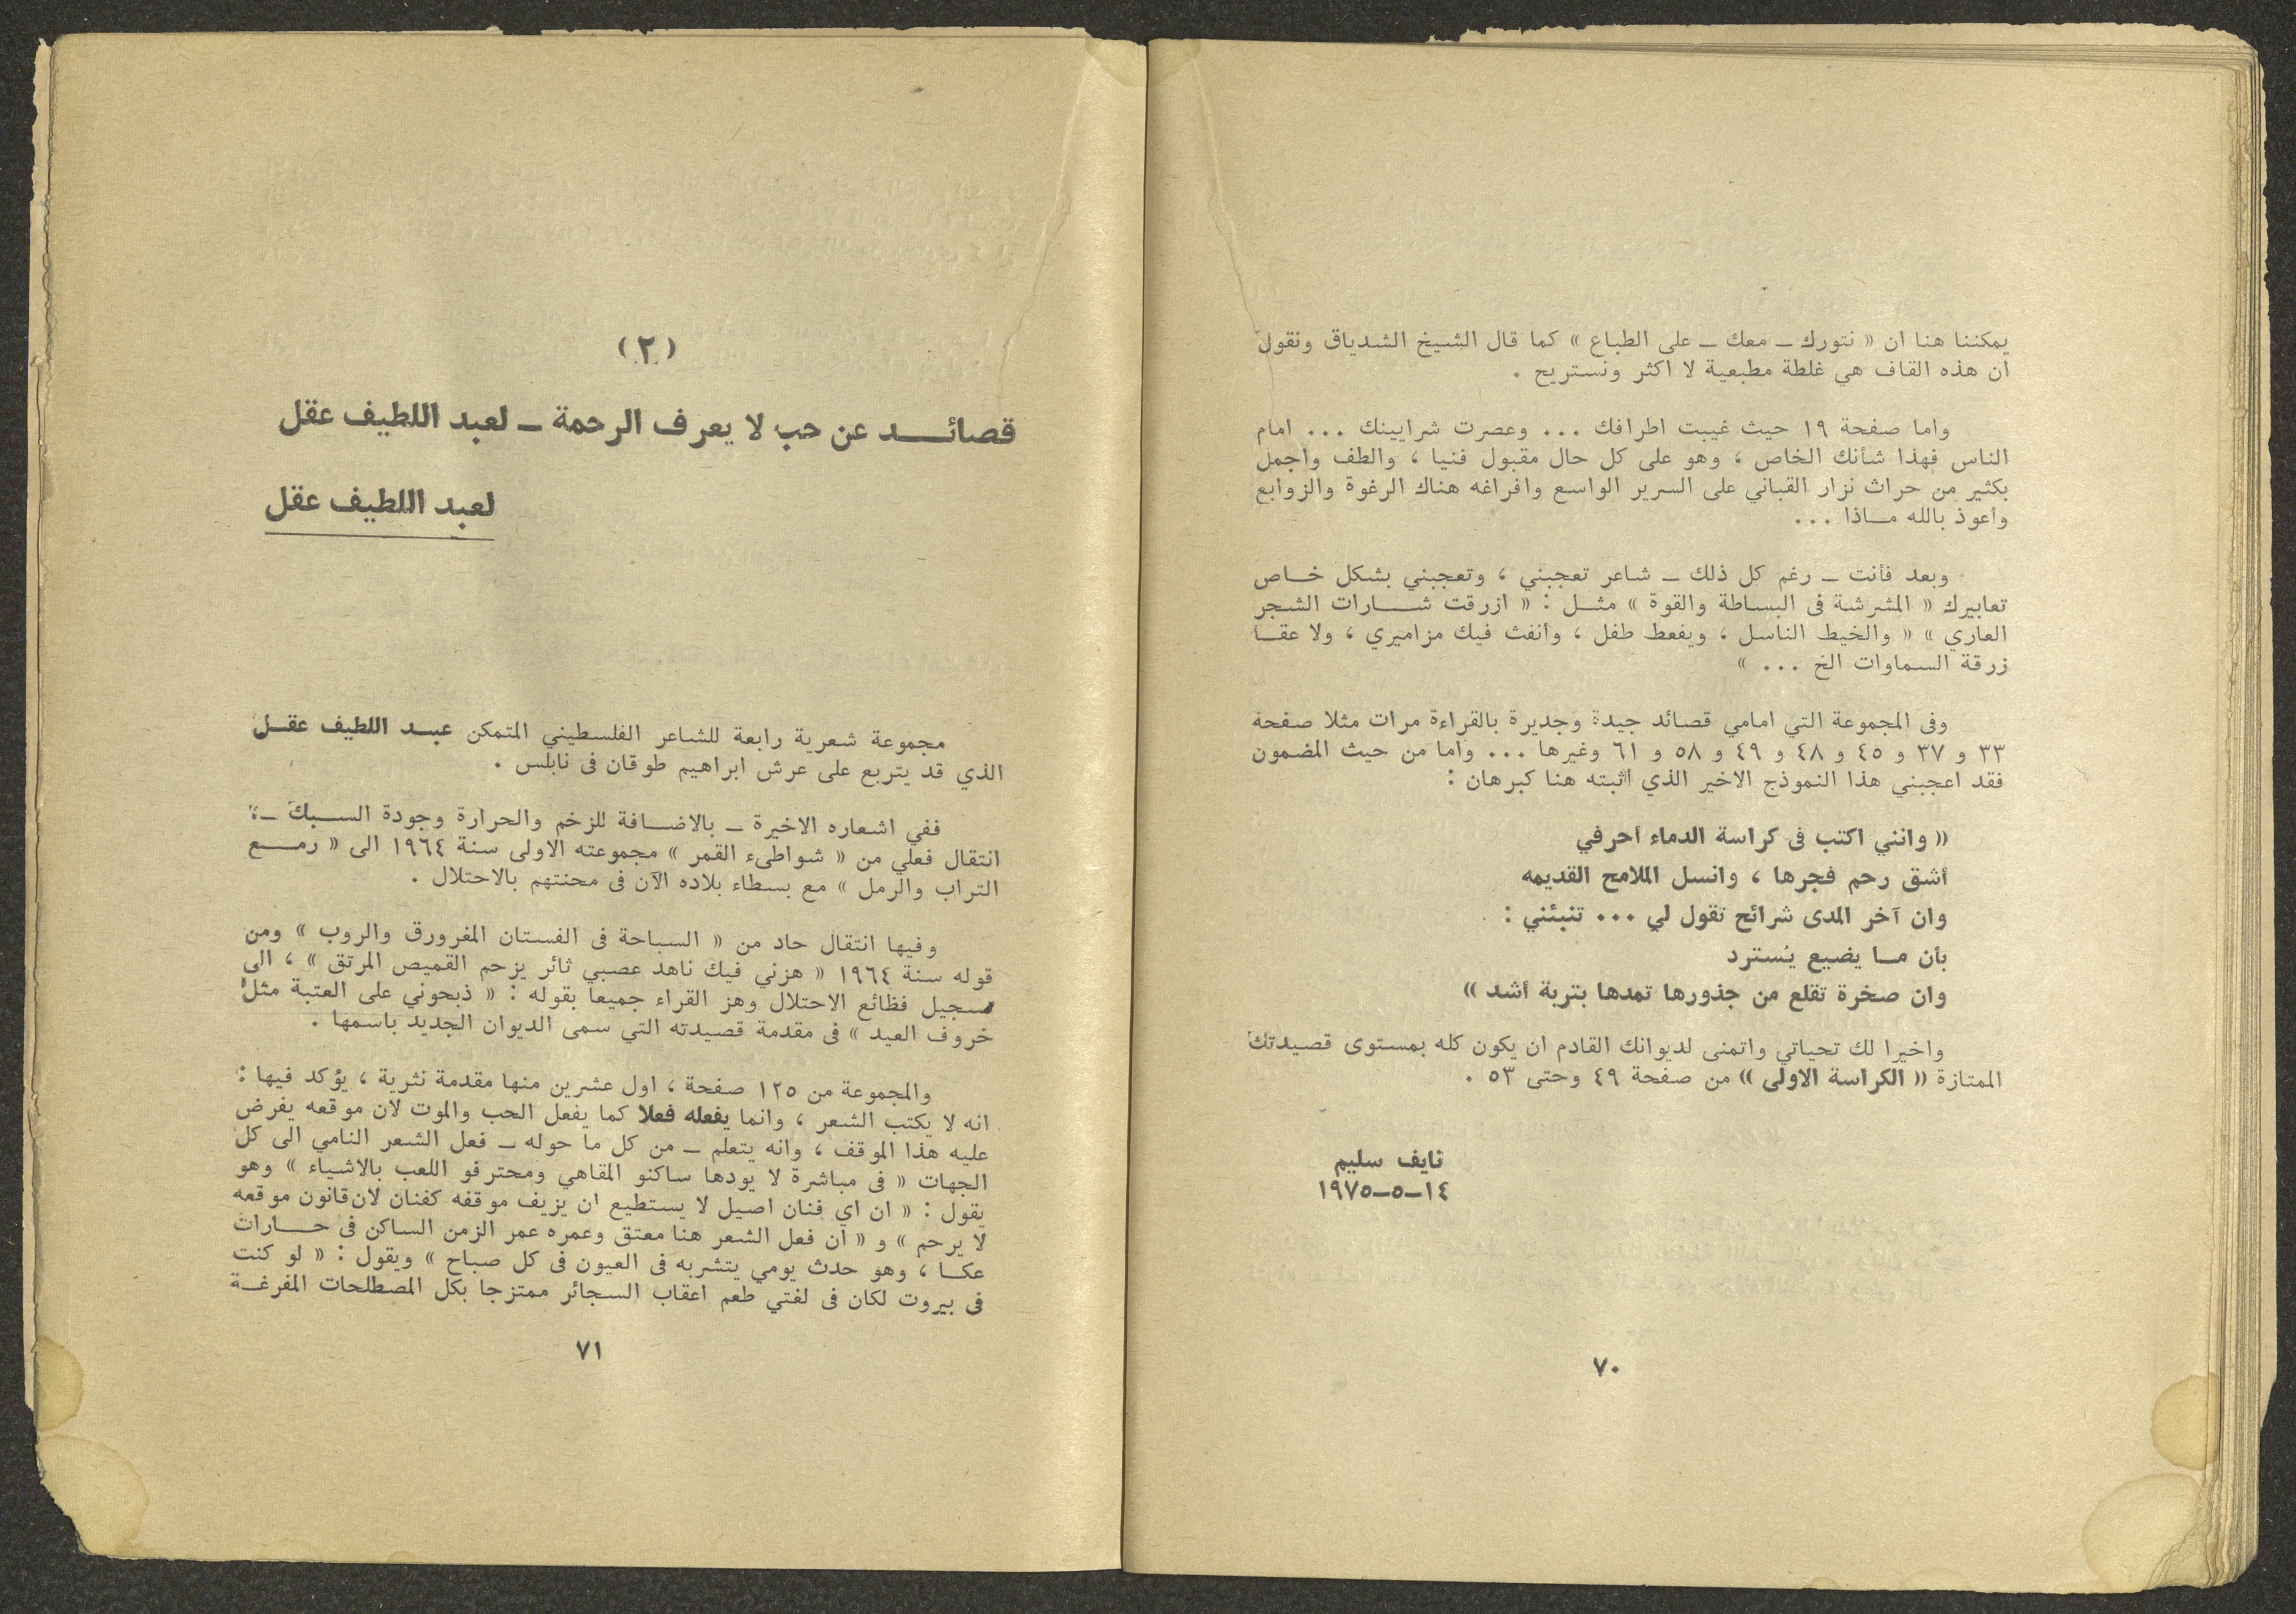 يمكننا هنا ان « نتورك ــ معك ــ على الطباع » كما قال الشيخ الشدياق ونقول
ان هذه القاف هي غلطة مطبعية لا اكثر ونستريح .
واما صفحة ١٩ حيث غيبت اطرافك ... وعصرت شرايينك ... امام
الناس فهذا شأنك الخاص ، وهو على كل حال مقبول فنيا ، والطف واجمل
بكثير من حراث نزار القباني على السرير الواسع وافراغه هناك الرغوة والزوابع
وأعوذ بالله مــاذا ...
وبعد فأنت ــ رغم كل ذلك ــ شاعر تعجبني ، وتعجبني بشكل خــاص
تعابيرك « المشرشة فى البساطة والقوة » مثــل : « ازرقت شــــارات الشجر
العاري » « والخيط الناسل ، ويفعط طفل ، وأنفث فيك مزاميري ، ولا عقــا
زرقة السماوات الخ ... »
وفى المجموعة التي امامي قصائد جيدة وجديرة بالقراءة مرات مثلا صفحة
٣٣ و ٣٧ و ٤٥ و ٤٨ و ٤٩ و ٥٨ و ٦١ وغيرها ... وأما من حيث المضمون
فقد اعجبني هذا النموذج الاخير الذي أثبته هنا كبرهان :
« وانني اكتب فى كراسة الدماء أحرفي
أشق رحم فجرها ، وانسل الملامح القديمه
وان آخر المدى شرائح تقول لي ... تنبئني :
بأن مــا يضيع يُسترد
وان صخرة تقلع من جذورها تمدها بتربة أشد »
واخيرا لك تحياتي واتمنى لديوانك القادم ان يكون كله بمستوى قصيدتك
الممتازة « الكراسة الاولى » من صفحة ٤٩ وحتى ٥٣ .
نايف سليم
١٤ــ٥ــ١٩٧٥
٧٠
( ٢ )
قصائـــــد عن حب لا يعرف الرحمة ــ لعبد اللطيف عقل
لعبد اللطيف عقل
مجموعة شعرية رابعة للشاعر الفلسطيني المتمكن عبــد اللطيف عقــل
الذي قد يتربع على عرش ابراهيم طوقان فى نابلس .
ففي اشعاره الاخيرة ــ بالاضــافة للزخم والحرارة وجودة الســبك ــ
انتقال فعلي من « شواطىء القمر » مجموعته الاولى سنة ١٩٦٤ الى « رمـــع
التراب والرمل » مع بسطاء بلاده الآن فى محنتهم بالاحتلال .
وفيها انتقال حاد من « السباحة فى الفستان المغرورق والروب » ومن
قوله سنة ١٩٦٤ « هزني فيك ناهد عصبي ثائر يزحم القميص المرتق » ، الى
سجيل فظائع الاحتلال وهز القراء جميعا بقوله : « ذبحوني على العتبة مثل
خروف العيد » فى مقدمة قصيدته التي سمى الديوان الجديد باسمها .
والمجموعة من ١٢٥ صفحة ، اول عشرين منها مقدمة نثرية ، يؤكد فيها :
انه لا يكتب الشعر ، وانما يفعله فعلا كما يفعل الحب والموت لان موقعه يفرض
عليه هذا الموقف ، وانه يتعلم ــ من كل ما حوله ــ فعل الشعر النامي الى كل
الجهات « فى مباشرة لا يودها ساكنو المقاهي ومحترفو اللعب بالاشياء » وهو
يقول : « ان اي فنان اصيل لا يستطيع ان يزيف موقفه كفنان لان قانون موقعه
لا يرحم » و « ان فعل الشعر هنا معتق وعمره عمر الزمن الساكن فى حــــارات
عكــا ، وهو حدث يومي يتشربه فى العيون فى كل صباح » ويقول : « لو كنت
فى بيروت لكان فى لغتي طعم اعقاب السجائر ممتزجا بكل المصطلحات المفرغــة
٧١